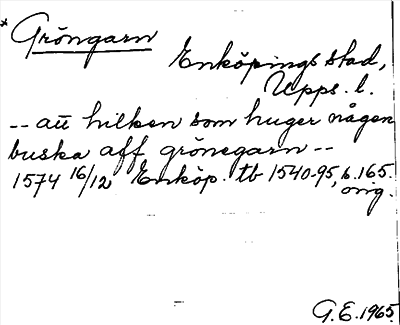 * Gröngarn
Enköpings stad,
Upps. l.
-- att hilken som huger någen
buska aff grönegarn --
1574 16/12 Enköp. tb 1540-95, s. 165.
orig.
G.E. 1965.